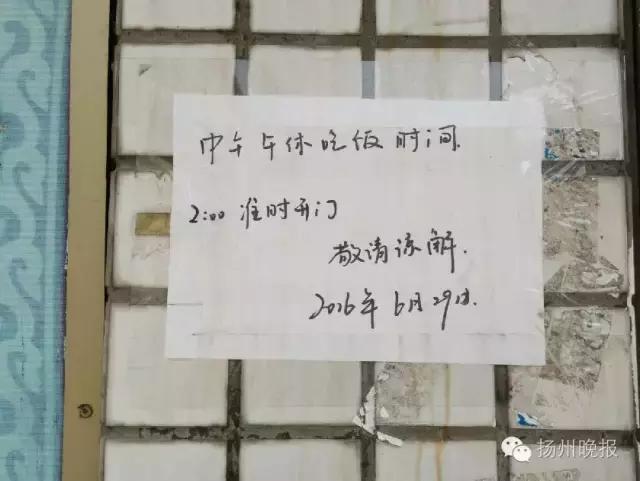 中午午休吃饭时间
2:00 准时开门
敬请谅解.
2016年6月29日.
扬州晚报